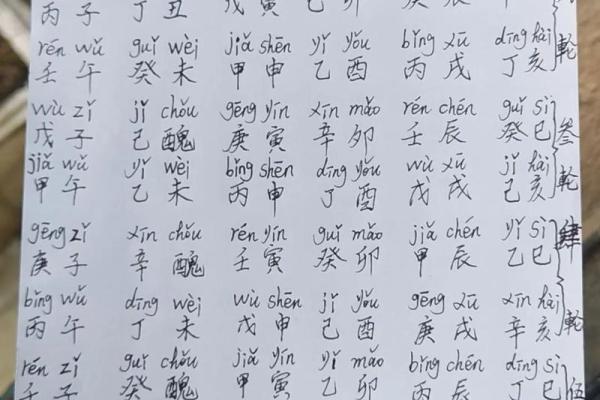 丙子 丁丑 戊寅 己卯
rén wǔ guǐ wèi jiǎ shēn yǐ yǒu bǐng xū dīng hài
壬午 癸未 甲申 乙酉 丙戌 丁亥 轮
wù zǐ jǐ chǒu gēng yín xīn mǎo rén chén guǐ sì
戊子 己醜 庚寅 辛卯 壬辰 癸巳 叁
jiǎ wǔ yǐ wèi bǐng shēn dīng yǒu wù xū jǐ hài
甲午 乙未 丙申 丁酉 戊戌 己亥 轮
gēng zǐ xīn chǒu rén yín guǐ mǎo jiǎ chén yǐ sì
庚子 辛醜 壬寅 癸卯 甲辰 乙巳 肆
bǐng wǔ dīng wèi wù shēn jǐ yǒu gēng xū xīn hài
丙午 丁未 戊申 己酉 庚戌 辛亥 轮
rén zǐ guǐ chǒu jiǎ yín yǐ mǎo bǐng chén dīng sì
壬子 癸醜 甲寅 乙卯 丙辰 丁巳 伍